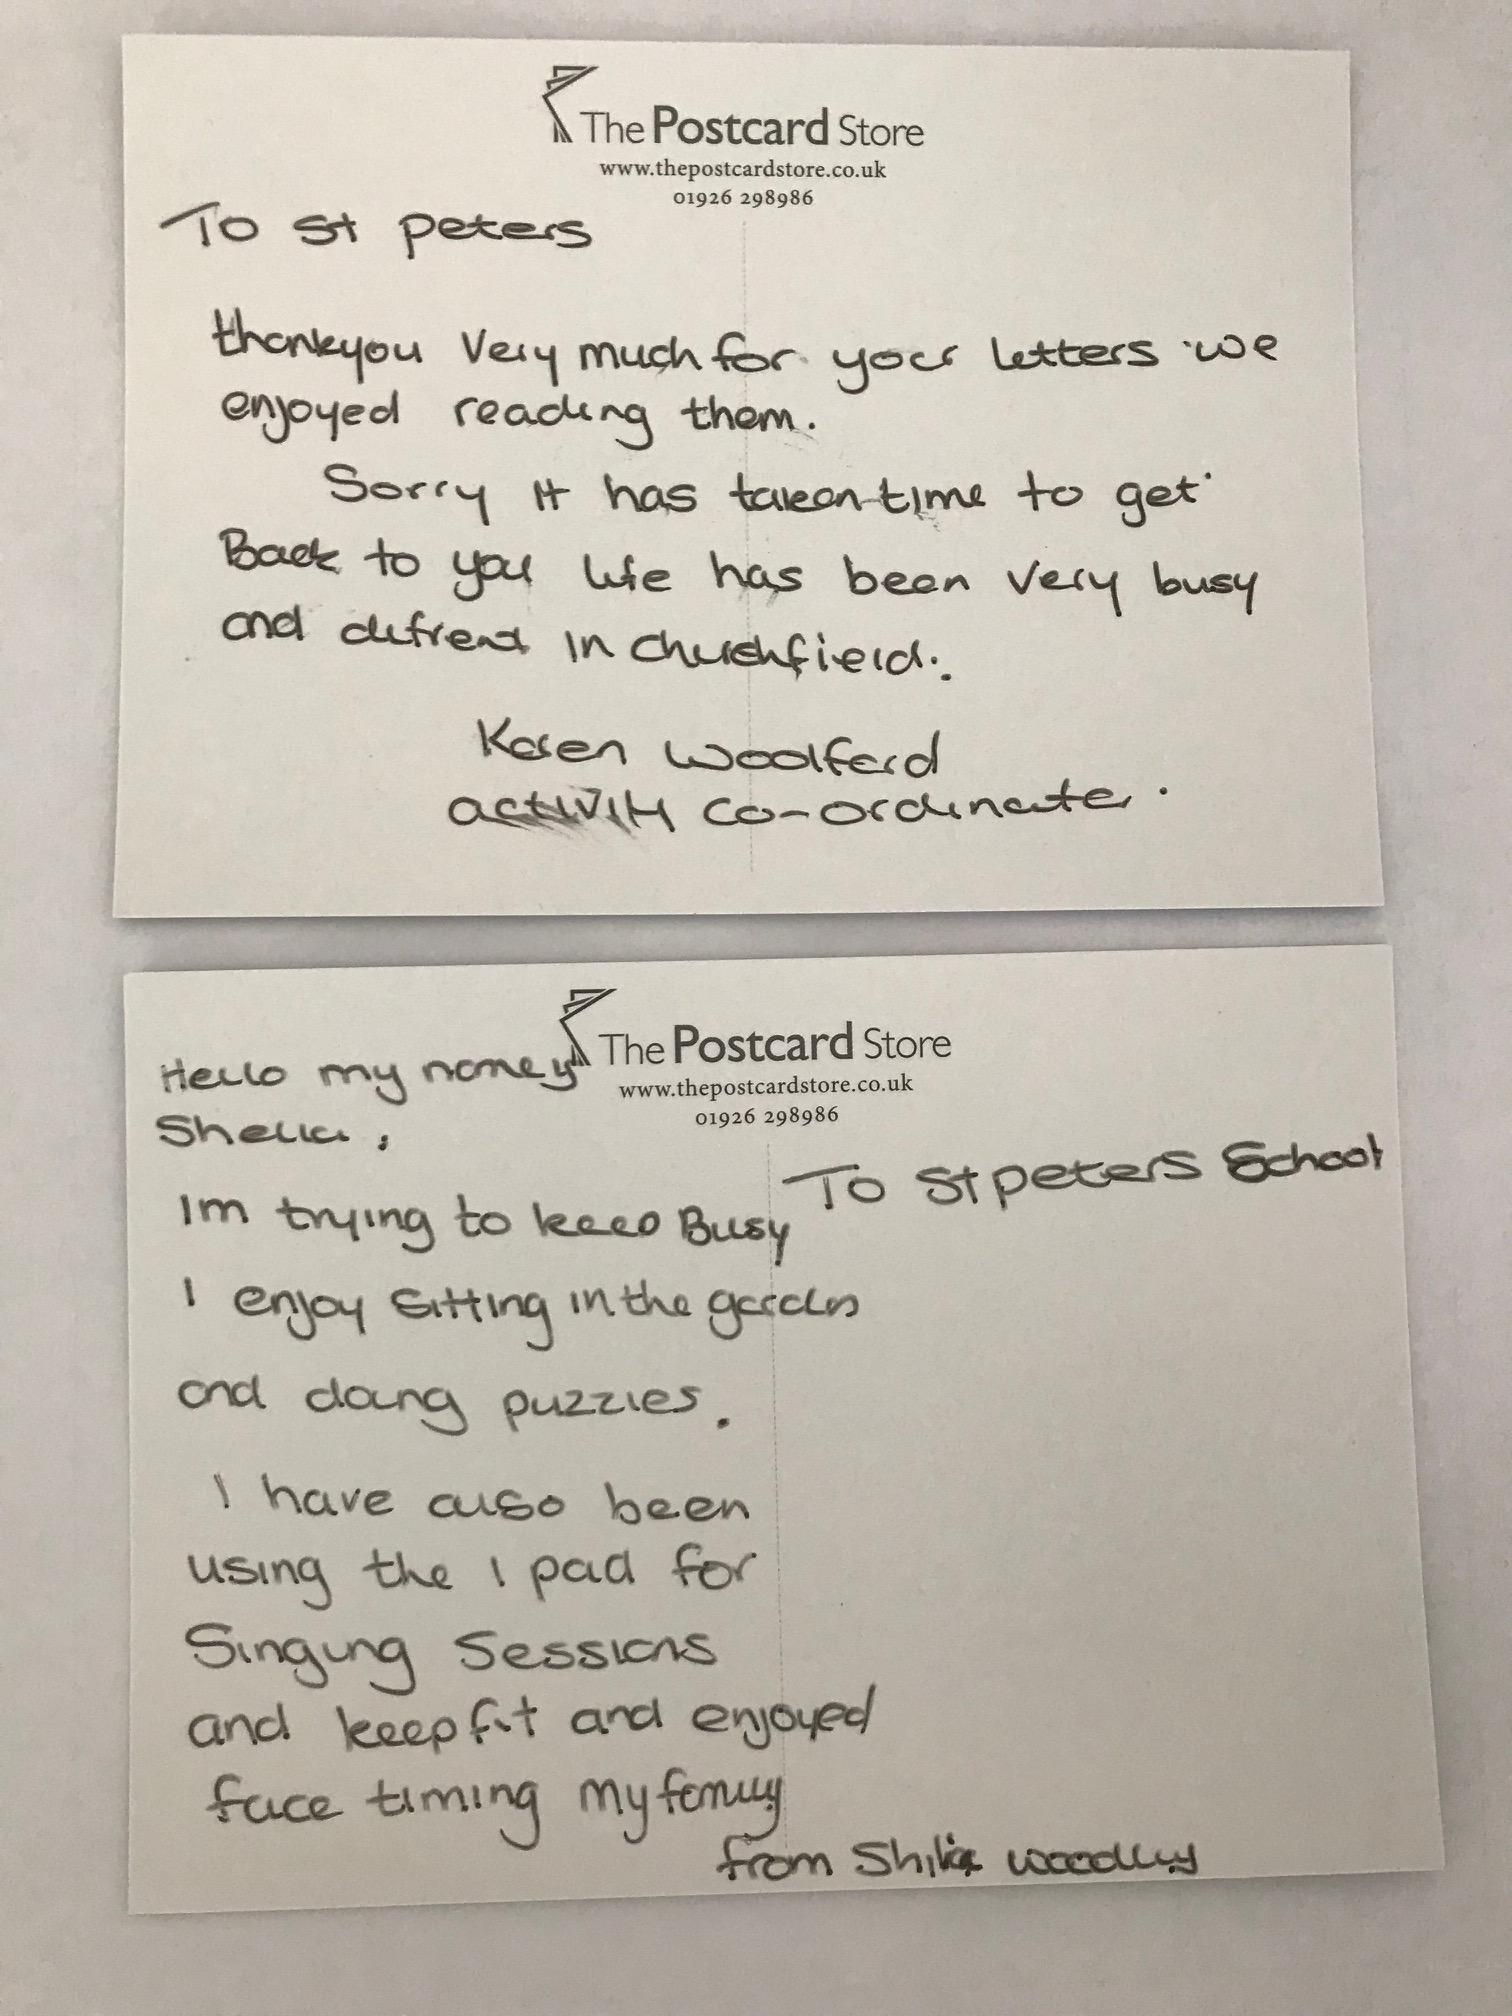 The Postcard Store
www.thepostcardstore.co.uk
01926 298986
To St peters
thankyou Very much for your letters we
enjoyed reading them.
Sorry It has taken time to get
Back to you life has been very busy
and difrent in Churchfield.
Karen Woolford
activity co-ordinater.
The Postcard Store
www.thepostcardstore.co.uk
01926 298986
Hello my name
Sheila.
To St peters School
Im trying to keep Busy
I enjoy sitting in the garden
and doing puzzles.
I have also been
using the I pad for
Singing Sessions
and keep fit and enjoyed
face timing my family
from Shila woodley